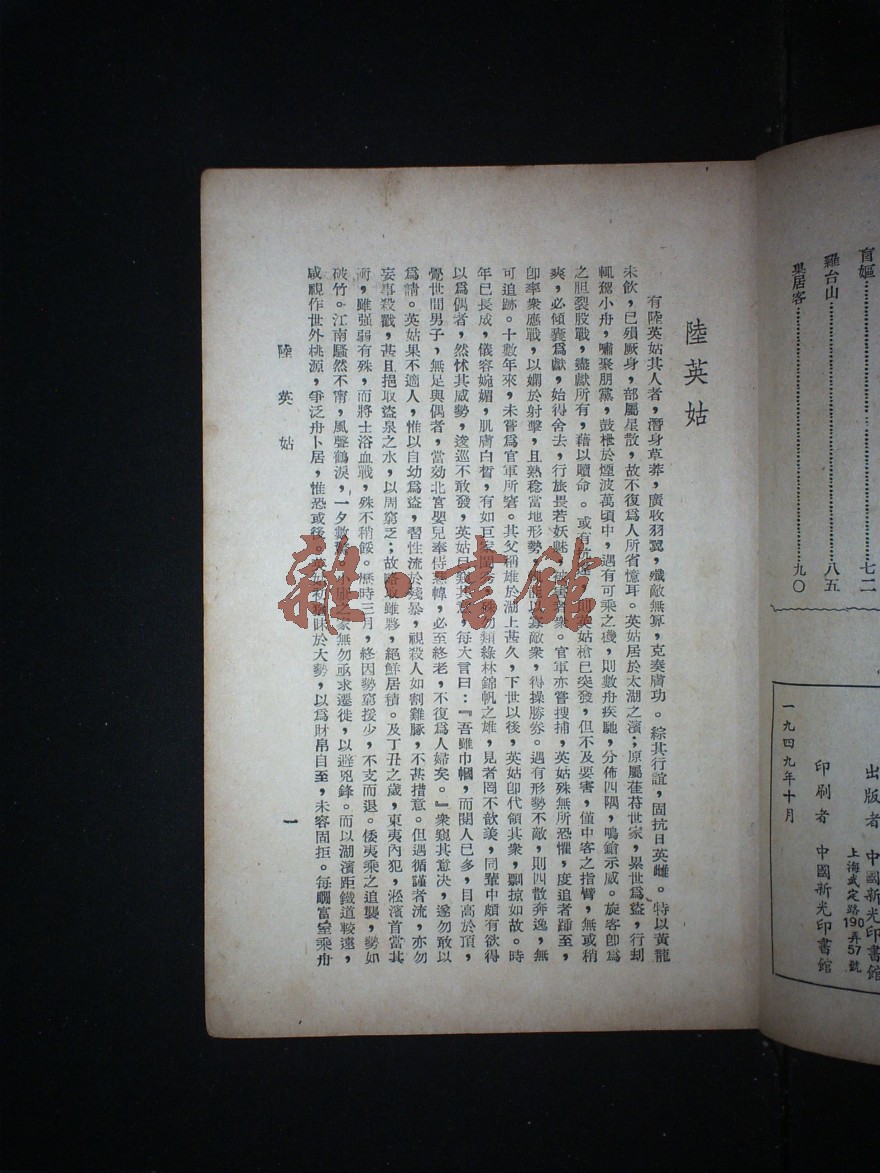 盲嫗……………………七二
羅台山……………………八五
巢居客……………………九〇
出版者 中國新光印書館
上海武定路190弄57號
印刷者 中國新光印書館
一九四九年十月
陸英姑
有陸英姑其人者，潛身草莽，廣收羽翼，殲敵無算，克奏膚功。綜其行誼，固抗日英雌。特以黃龍
未飲，已殞厥身，部屬星散，故不復爲人所省憶耳。英姑居於太湖之濱；原屬萑苻世家，累世爲盜，行刦
輒駕小舟，嘯聚朋黨，鼓枻於煙波萬頃中，遇有可乘之機，則數舟疾馳，分佈四隅，鳴鎗示威。旋客卽爲
之胆裂股戰，盡獻所有，藉以贖命。或有則英姑槍已突發，但不及要害，僅中客之指臂，無或稍
爽，必傾囊爲獻，始得舍去，行旅畏若妖魅，者衆。官軍亦嘗搜捕，英姑殊無所恐懼，度追者踵至，
卽率衆應戰，以嫻於射擊，且熟稔當地形勢，能以寡敵衆，得操勝劵。遇有形勢不敵，則四散奔逸，無
可追跡。十數年來，未嘗爲官軍所窘。其父稱雄於湖上甚久，下世以後，英姑卽代領其衆，剽掠如故。時
年已長成，儀容婉媚，肌膚白皙，有如巨家閨秀，殊勿類綠林錦帆之雄，見者罔不歆羨，同輩中頗有欲得
以爲偶者，然怵其威勢，逡巡不敢發，英姑已窺其意，每大言曰：『吾雖巾幗，而閱人已多，目高於頂，
覺世間男子，無足與偶者，當効北宮嬰兒奉侍慈幃，必至終老，不復爲人婦矣。』衆窺其意决，遂勿敢以
爲請。英姑果不適人，惟以自幼爲盜，習性流於殘暴，視殺人如割雞豚，不甚措意。但遇循謹者流，亦勿
妄事殺戮，甚且挹取盜泉之水，以周窮乏；故略取雖夥，絕鮮居積。及丁丑之歲，東夷內犯，淞濱首當其
衝，雖强弱有殊，而將士浴血戰，殊不稍餒。歷時三月，終因勢窮援少，不支而退。倭夷乘之追襲，勢如
破竹。江南騷然不甯，風聲鶴淚，一夕數驚。小康之家無勿亟求遷徙，以避兇鋒。而以湖濱距鐵道較遠，
咸視作世外桃源，爭泛舟卜居，惟恐或後。英姑初瞢昧於大勢，以爲財帛自至，未容固拒。每矙富室乘舟
陸英姑
一
雜·書館